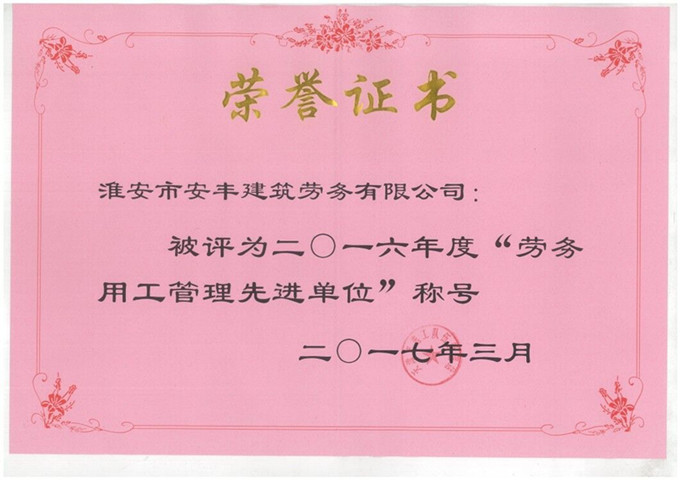 荣誉证书
淮安市安丰建筑劳务有限公司：
被评为二〇一六年度“劳务
用工管理先进单位”称号
二〇一七年三月